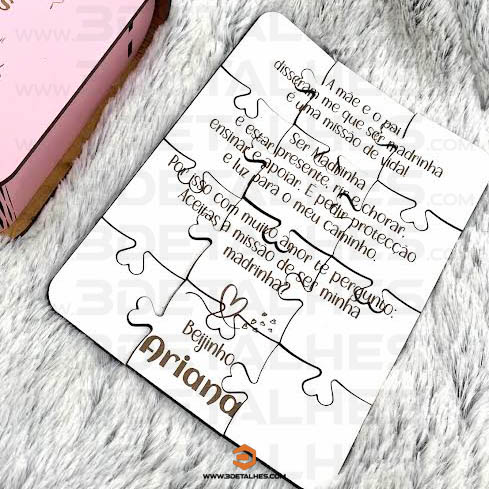 A mãe e o pai
disseram me que ser madrinha
é uma missão de vida!
Ser Madrinha
é estar presente, rir e chorar,
ensinar e apoiar. É pedir protecção
e luz para o meu caminho.
Por isso com muito amor te pergunto:
Aceitas a missão de ser minha
madrinha?
Beijinho,
Ariana
WWW.3DETALHES.COM